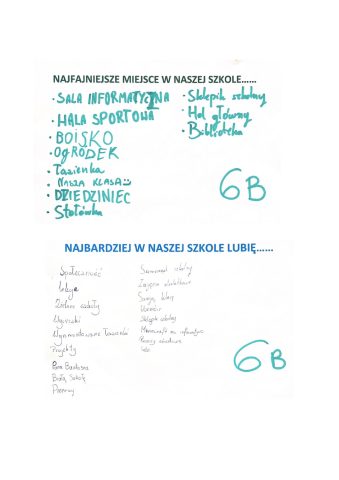 NAJFAJNIEJSZE MIEJSCE W NASZEJ SZKOLE......
• SALA INFORMATYCZNA
• HALA SPORTOWA
• BOISKO
• OGRÓDEK
• Łazienka
• NASZA KLASA
• DZIEDZINIEC
• Stołówka
• Sklepik szkolny
• Hol główny
• Biblioteka
6B
NAJBARDZIEJ W NASZEJ SZKOLE LUBIĘ......
Społeczność
Lekcje
Zielone szkoły
Wycieczki
Wyremontowane Łazienki
Projekty
Pani Barbara
Boisko Szkolne
Przerwy
Samorząd szkolny
Zajęcia dodatkowe
Swoją klasę
Sklepik szkolny
Minecraft na informatyce
6B